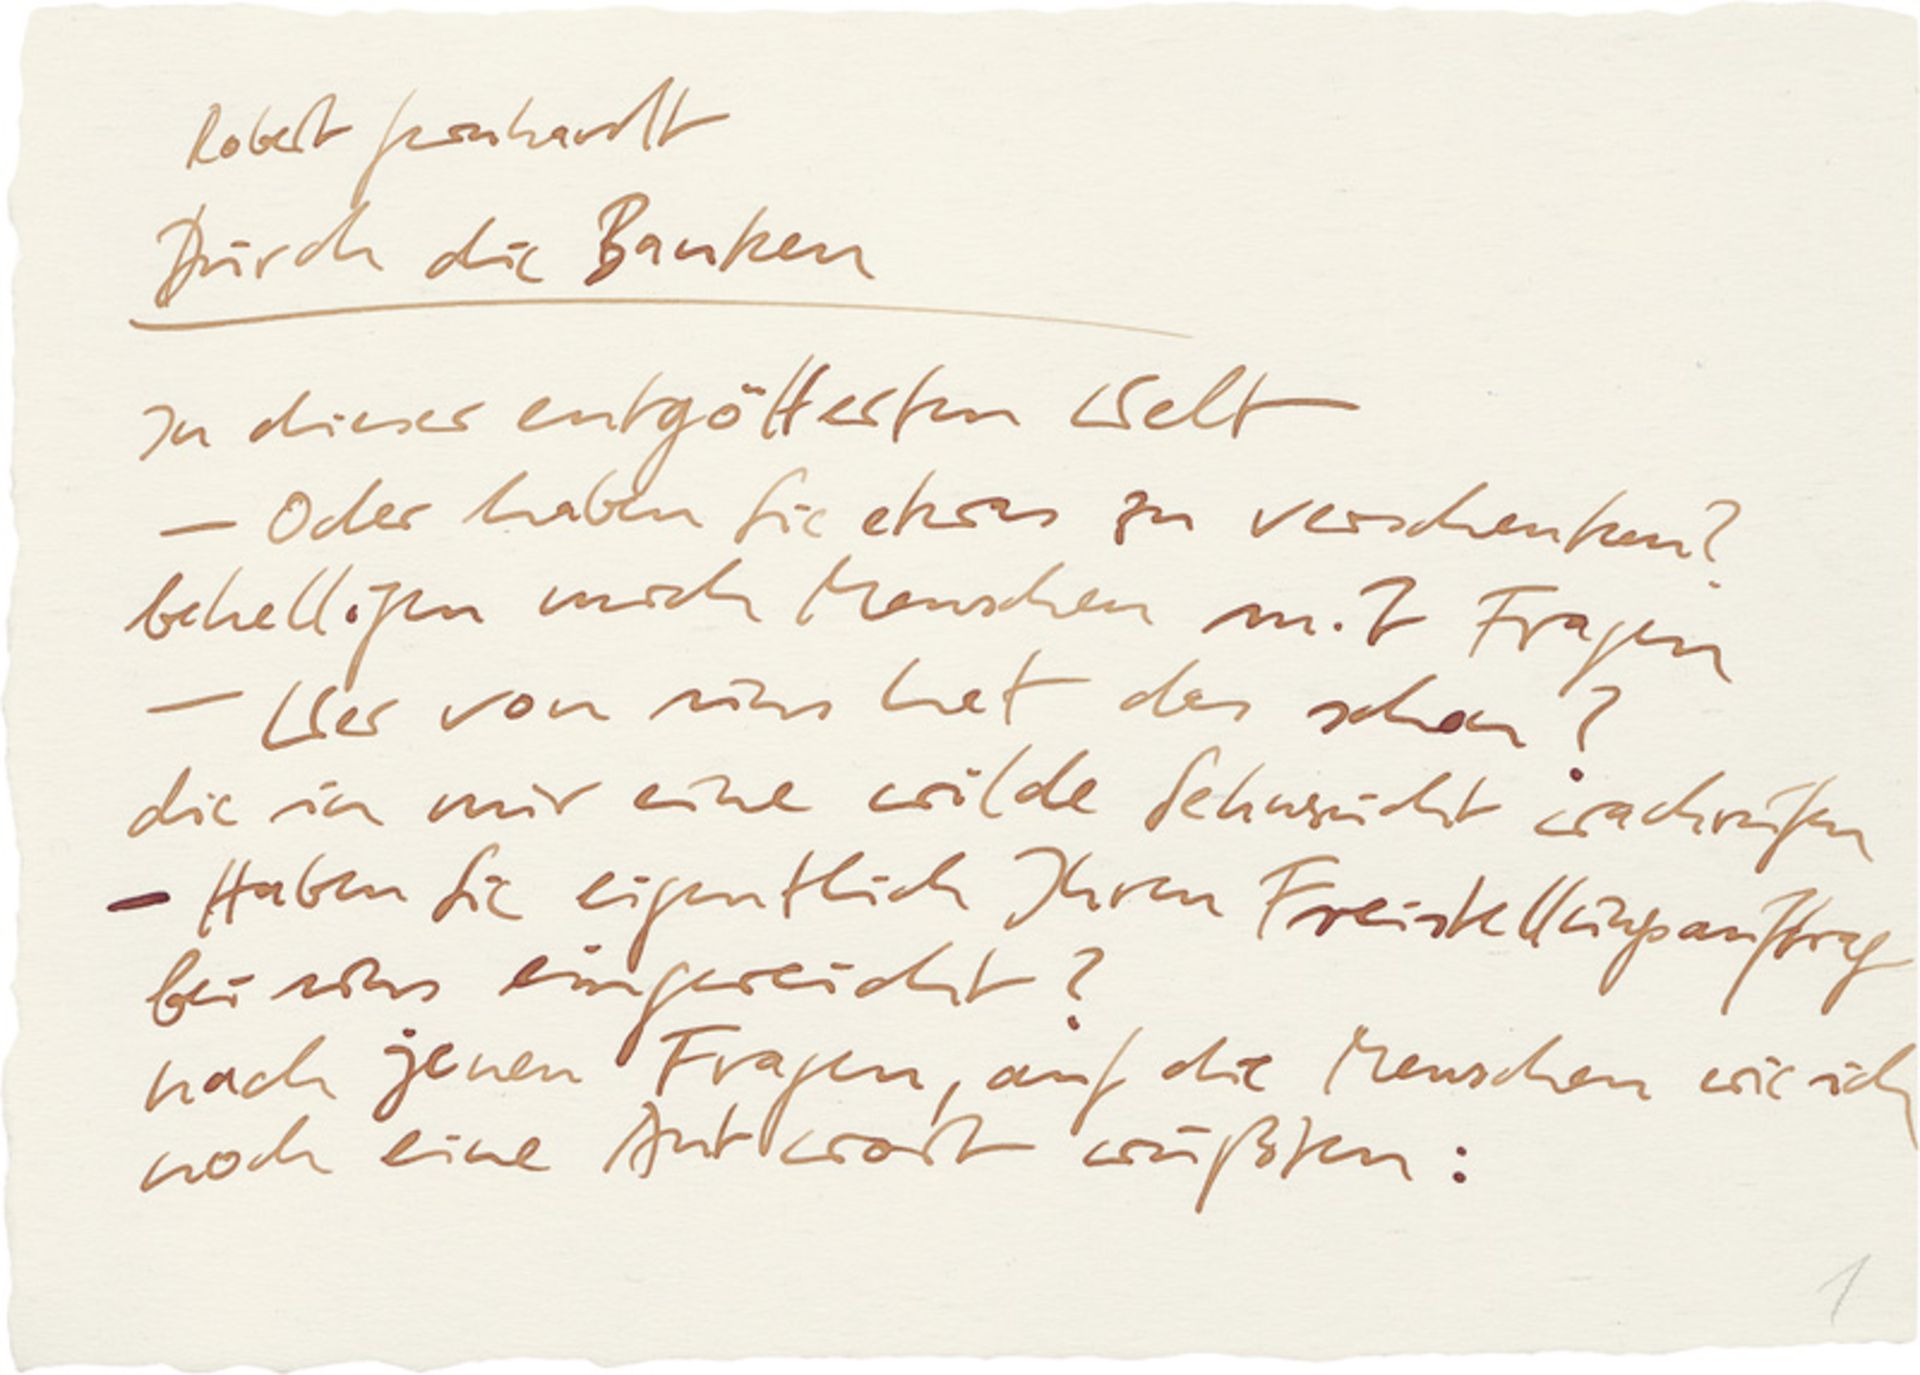 Robert Gernhardt
Durch die Banken
In dieser entgötterten Welt
– Oder haben Sie etwas zu verschenken?
behelligen mich Menschen mit Fragen
– Wer von uns hat das schon?
die in mir eine wilde Sehnsucht wachrufen
– Haben Sie eigentlich Ihren Freistellungsauftrag
bei uns eingereicht?
nach jenen Fragen, auf die Menschen wie ich
noch eine Antwort wüßten:
1